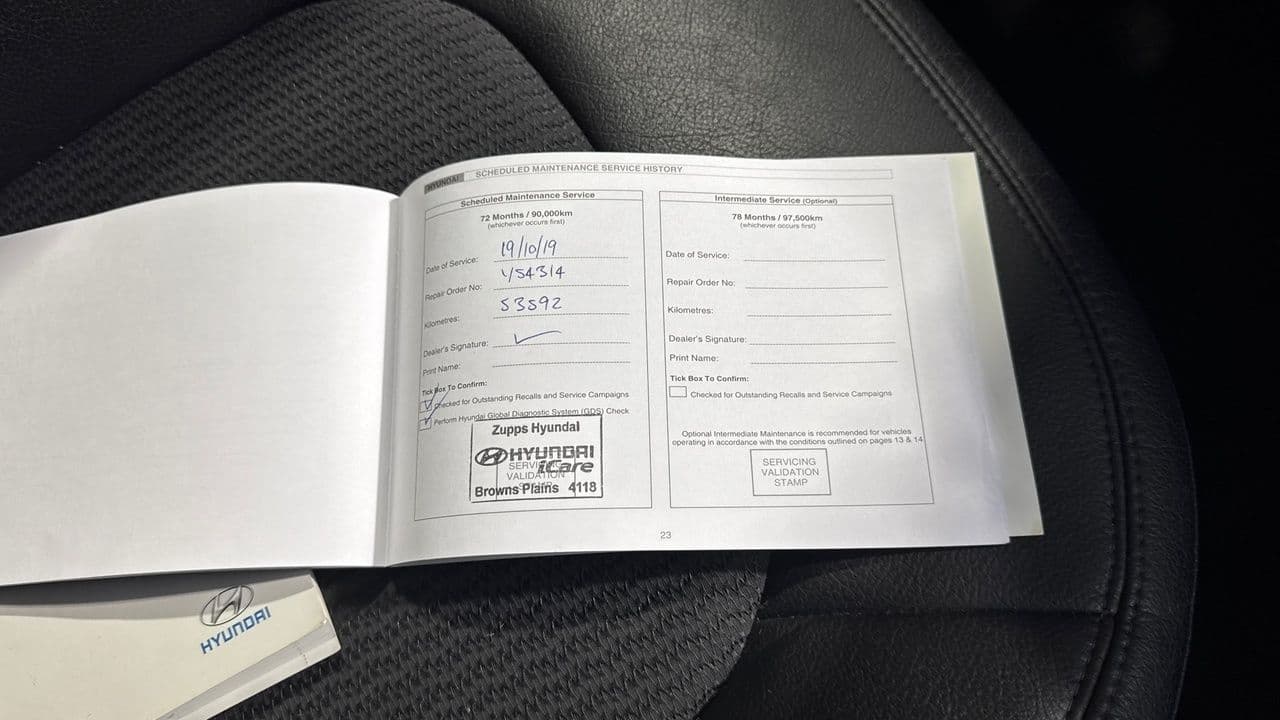 HYUNDAI SCHEDULED MAINTENANCE SERVICE HISTORY
Scheduled Maintenance Service
72 Months / 90,000km
(whichever occurs first)
Date of Service: 19/10/19
Repair Order No: 454314
Kilometres: 53592
Dealer's Signature:
Print Name:
Tick Box To Confirm:
Checked for Outstanding Recalls and Service Campaigns
Perform Hyundai Global Diagnostic System (GDS) Check
Zupps Hyundai
HYUNDAI
iCare
SERVICING
VALIDATION
STAMP
Browns Plains 4118
Intermediate Service (Optional)
78 Months / 97,500km
(whichever occurs first)
Date of Service:
Repair Order No:
Kilometres:
Dealer's Signature:
Print Name:
Tick Box To Confirm:
Checked for Outstanding Recalls and Service Campaigns
Optional Intermediate Maintenance is recommended for vehicles
operating in accordance with the conditions outlined on pages 13 & 14
SERVICING
VALIDATION
STAMP
23
HYUNDAI